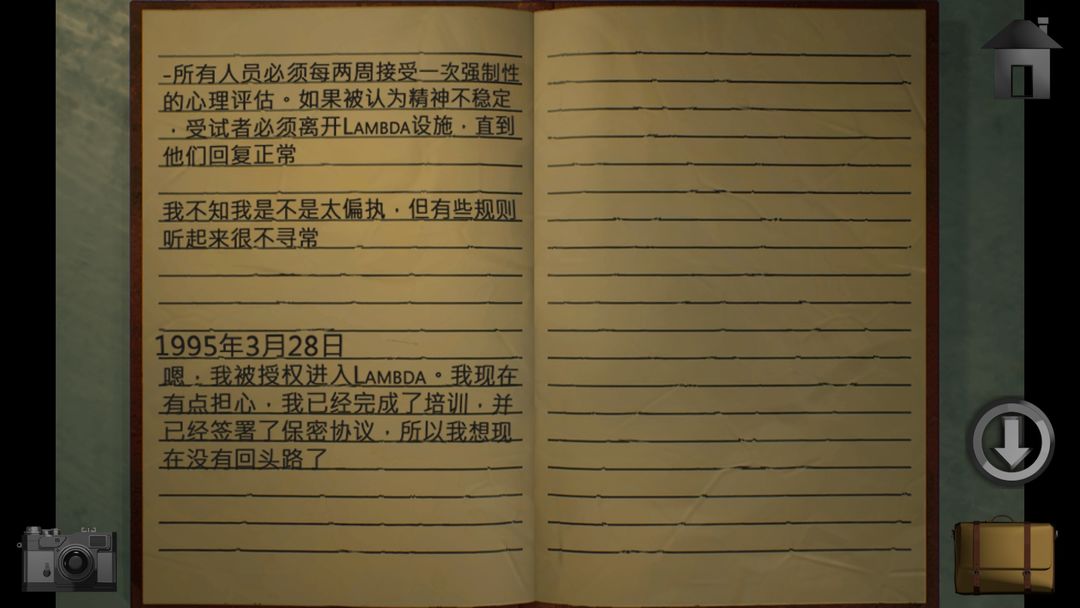 -所有人员必须每两周接受一次强制性
的心理评估。如果被认为精神不稳定
，受试者必须离开LAMBDA设施，直到
他们回复正常
我不知我是不是太偏执，但有些规则
听起来很不寻常
1995年3月28日
嗯，我被授权进入LAMBDA。我现在
有点担心，我已经完成了培训，并
已经签署了保密协议，所以我想现
在没有回头路了